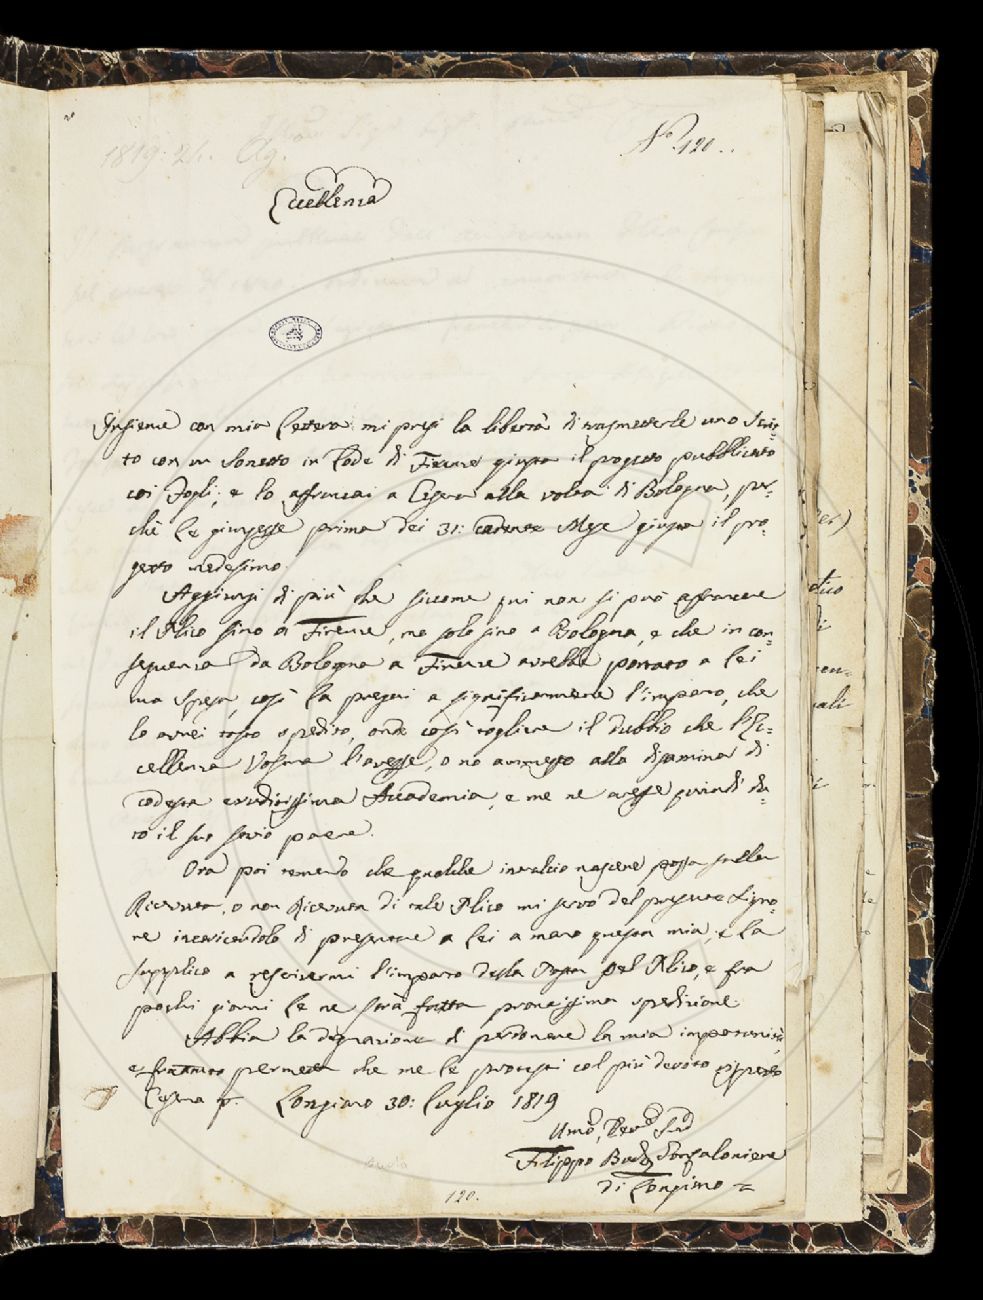 N.º 120..
1819: 24. Ag.
Eccellenza
Insieme con mia Lettera mi presi la libertà di trasmetterle uno Scrit-
to con un Sonetto in Lode di Firenze giusta il progetto pubblicato
coi Fogli; e lo affrancai a Cesena alla volta di Bologna, per-
chè le giungesse prima dei 31: cadente Mese giusta il pro-
getto medesimo.
Aggiunsi di più che siccome qui non si può affrancare
il Plico sino a Firenze, ma solo sino a Bologna, e che in con-
seguenza da Bologna a Firenze avrebbe portato a Lei
una spesa, così la pregai a significarmene l'importo, che
lo avrei tosto spedito, onde così togliere il dubbio che l'Ec-
cellenza Vostra l'avesse, o no ammesso alla disamina di
codesta eruditissima Accademia, e me ne avesse quindi da-
to il suo savio parere.
Ora poi temendo che qualche intralcio nascere possa sulla
Ricevuta, o non Ricevuta di tale Plico mi servo del presente Signo-
re incaricandolo di presentare a Lei a mano questa mia, e la
supplico a rescrivermi l'importo della Posta del Plico, e fra
pochi giorni le ne sarà fatta prontissima spedizione
Abbia la degnazione di perdonare la mia importunità,
e frattanto permetta che me le protesti col più devoto rispetto
Cesena p. Longiano 30: Luglio 1819
Umo, Devo Servo
Filippo Gonfaloniere
di Longiano
120.